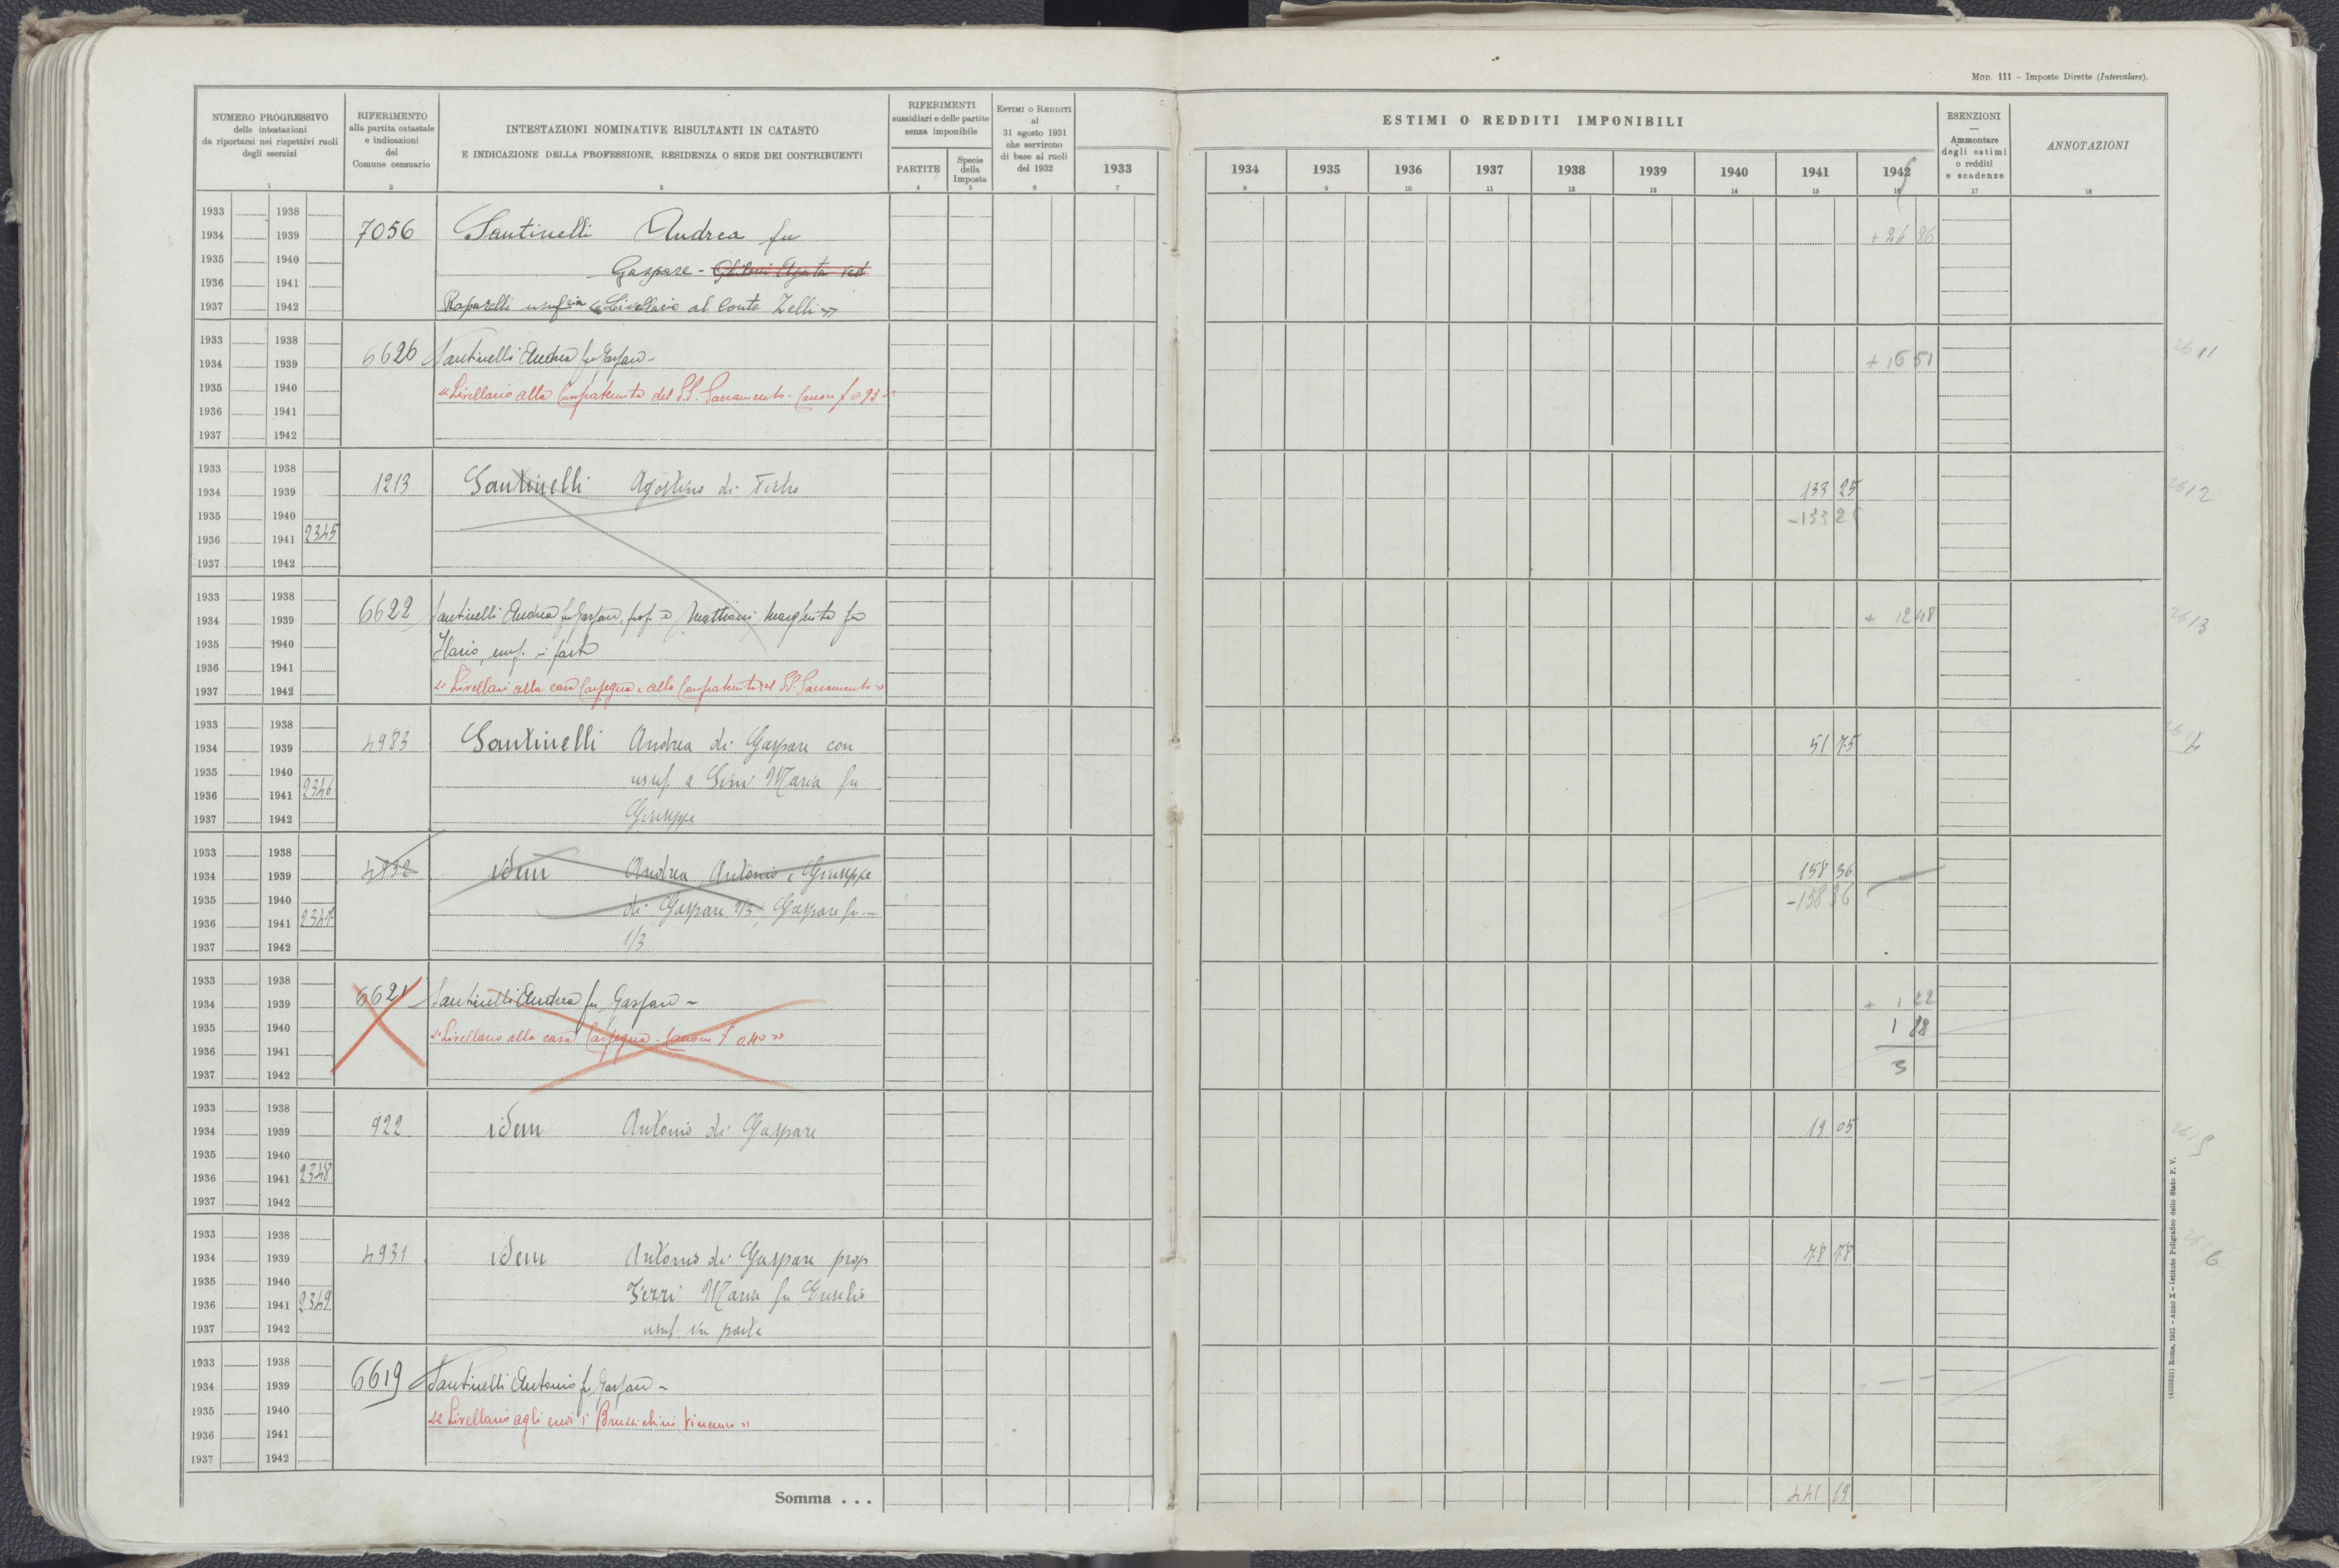 Mod. 111 - Imposte Dirette (Intercalare).
NUMERO PROGRESSIVO
delle intestazioni
da riportarsi nei rispettivi ruoli
degli esercizi
RIFERIMENTO
alla partita catastale
e indicazioni
del
Comune censuario
INTESTAZIONI NOMINATIVE RISULTANTI IN CATASTO
E INDICAZIONE DELLA PROFESSIONE, RESIDENZA O SEDE DEI CONTRIBUENTI
RIFERIMENTI
sussidiari e delle partite
senza imponibile
PARTITE
Specie
della
Imposta
ESTIMI O REDDITI
al
31 agosto 1931
che servirono
di base ai ruoli
del 1932
ESTIMI O REDDITI IMPONIBILI
ESENZIONI
—
Ammontare
degli estimi
o redditi
e scadenze
ANNOTAZIONI
1933 1934 1935 1936 1937 1938 1939 1940 1941 1942
1 2 3 4 5 6 7 8 9 10 11 12 13 14 15 16 17 18
1933 1938
1934 1939 7056 Santinelli Andrea fu + 24 86
1935 1940 Gaspare - Ghiloni Agata ved
1936 1941
1937 1942 Raparelli usufria « Livellario al Conte Zelli »
1933 1938
1934 1939 6626 Santinelli Andrea fu Gaspare - + 16 51 2611
1935 1940 « Livellario alla Confraternita del S.S. Sacramento - Canon f 0 93 »
1936 1941
1937 1942
1933 1938
1934 1939 1213 Santinelli Agostino di Pietro 133 25 2612
1935 1940 -133 25
1936 1941 2345
1937 1942
1933 1938
1934 1939 6622 Santinelli Andrea fu Gaspare, prop. e Mattioni Margherita fu + 12 48 2613
1935 1940 Ilario, usuf. in parte
1936 1941
1937 1942 « Livellari alla casa Carpegna e alla Confraternita del SS. Sacramento »
1933 1938
1934 1939 4983 Santinelli Andrea di Gaspare con 51 75
1935 1940 usuf. a Maria fu
1936 1941 2346
1937 1942 Giuseppe
1933 1938
1934 1939 4932 idem Andrea Antonio e Giuseppe 158 36
1935 1940 di Gaspare 2/3, Gaspare fu - -158 36
1936 1941 2347
1937 1942 1/3
1933 1938
1934 1939 6621 Santinelli Andrea fu Gaspare - + 1 22
1935 1940 « Livellario alla casa Carpegna - Canone f 0.40 » 1 88
1936 1941
1937 1942 3
1933 1938
1934 1939 922 idem Antonio di Gaspare 19 05 2615
1935 1940
1936 1941 2348
1937 1942
1933 1938
1934 1939 4931 idem Antonio di Gaspare prop 78 78 2616
1935 1940 Maria fu Eusebio
1936 1941 2349
1937 1942 usuf in parte
1933 1938
1934 1939 6619 Santinelli Antonio fu Gaspare -
1935 1940 « Livellario agli eredi Vincenzo »
1936 1941
1937 1942
Somma . . . 441 19
Roma, 1931 - Anno X - Istituto Poligrafico dello Stato P. V.